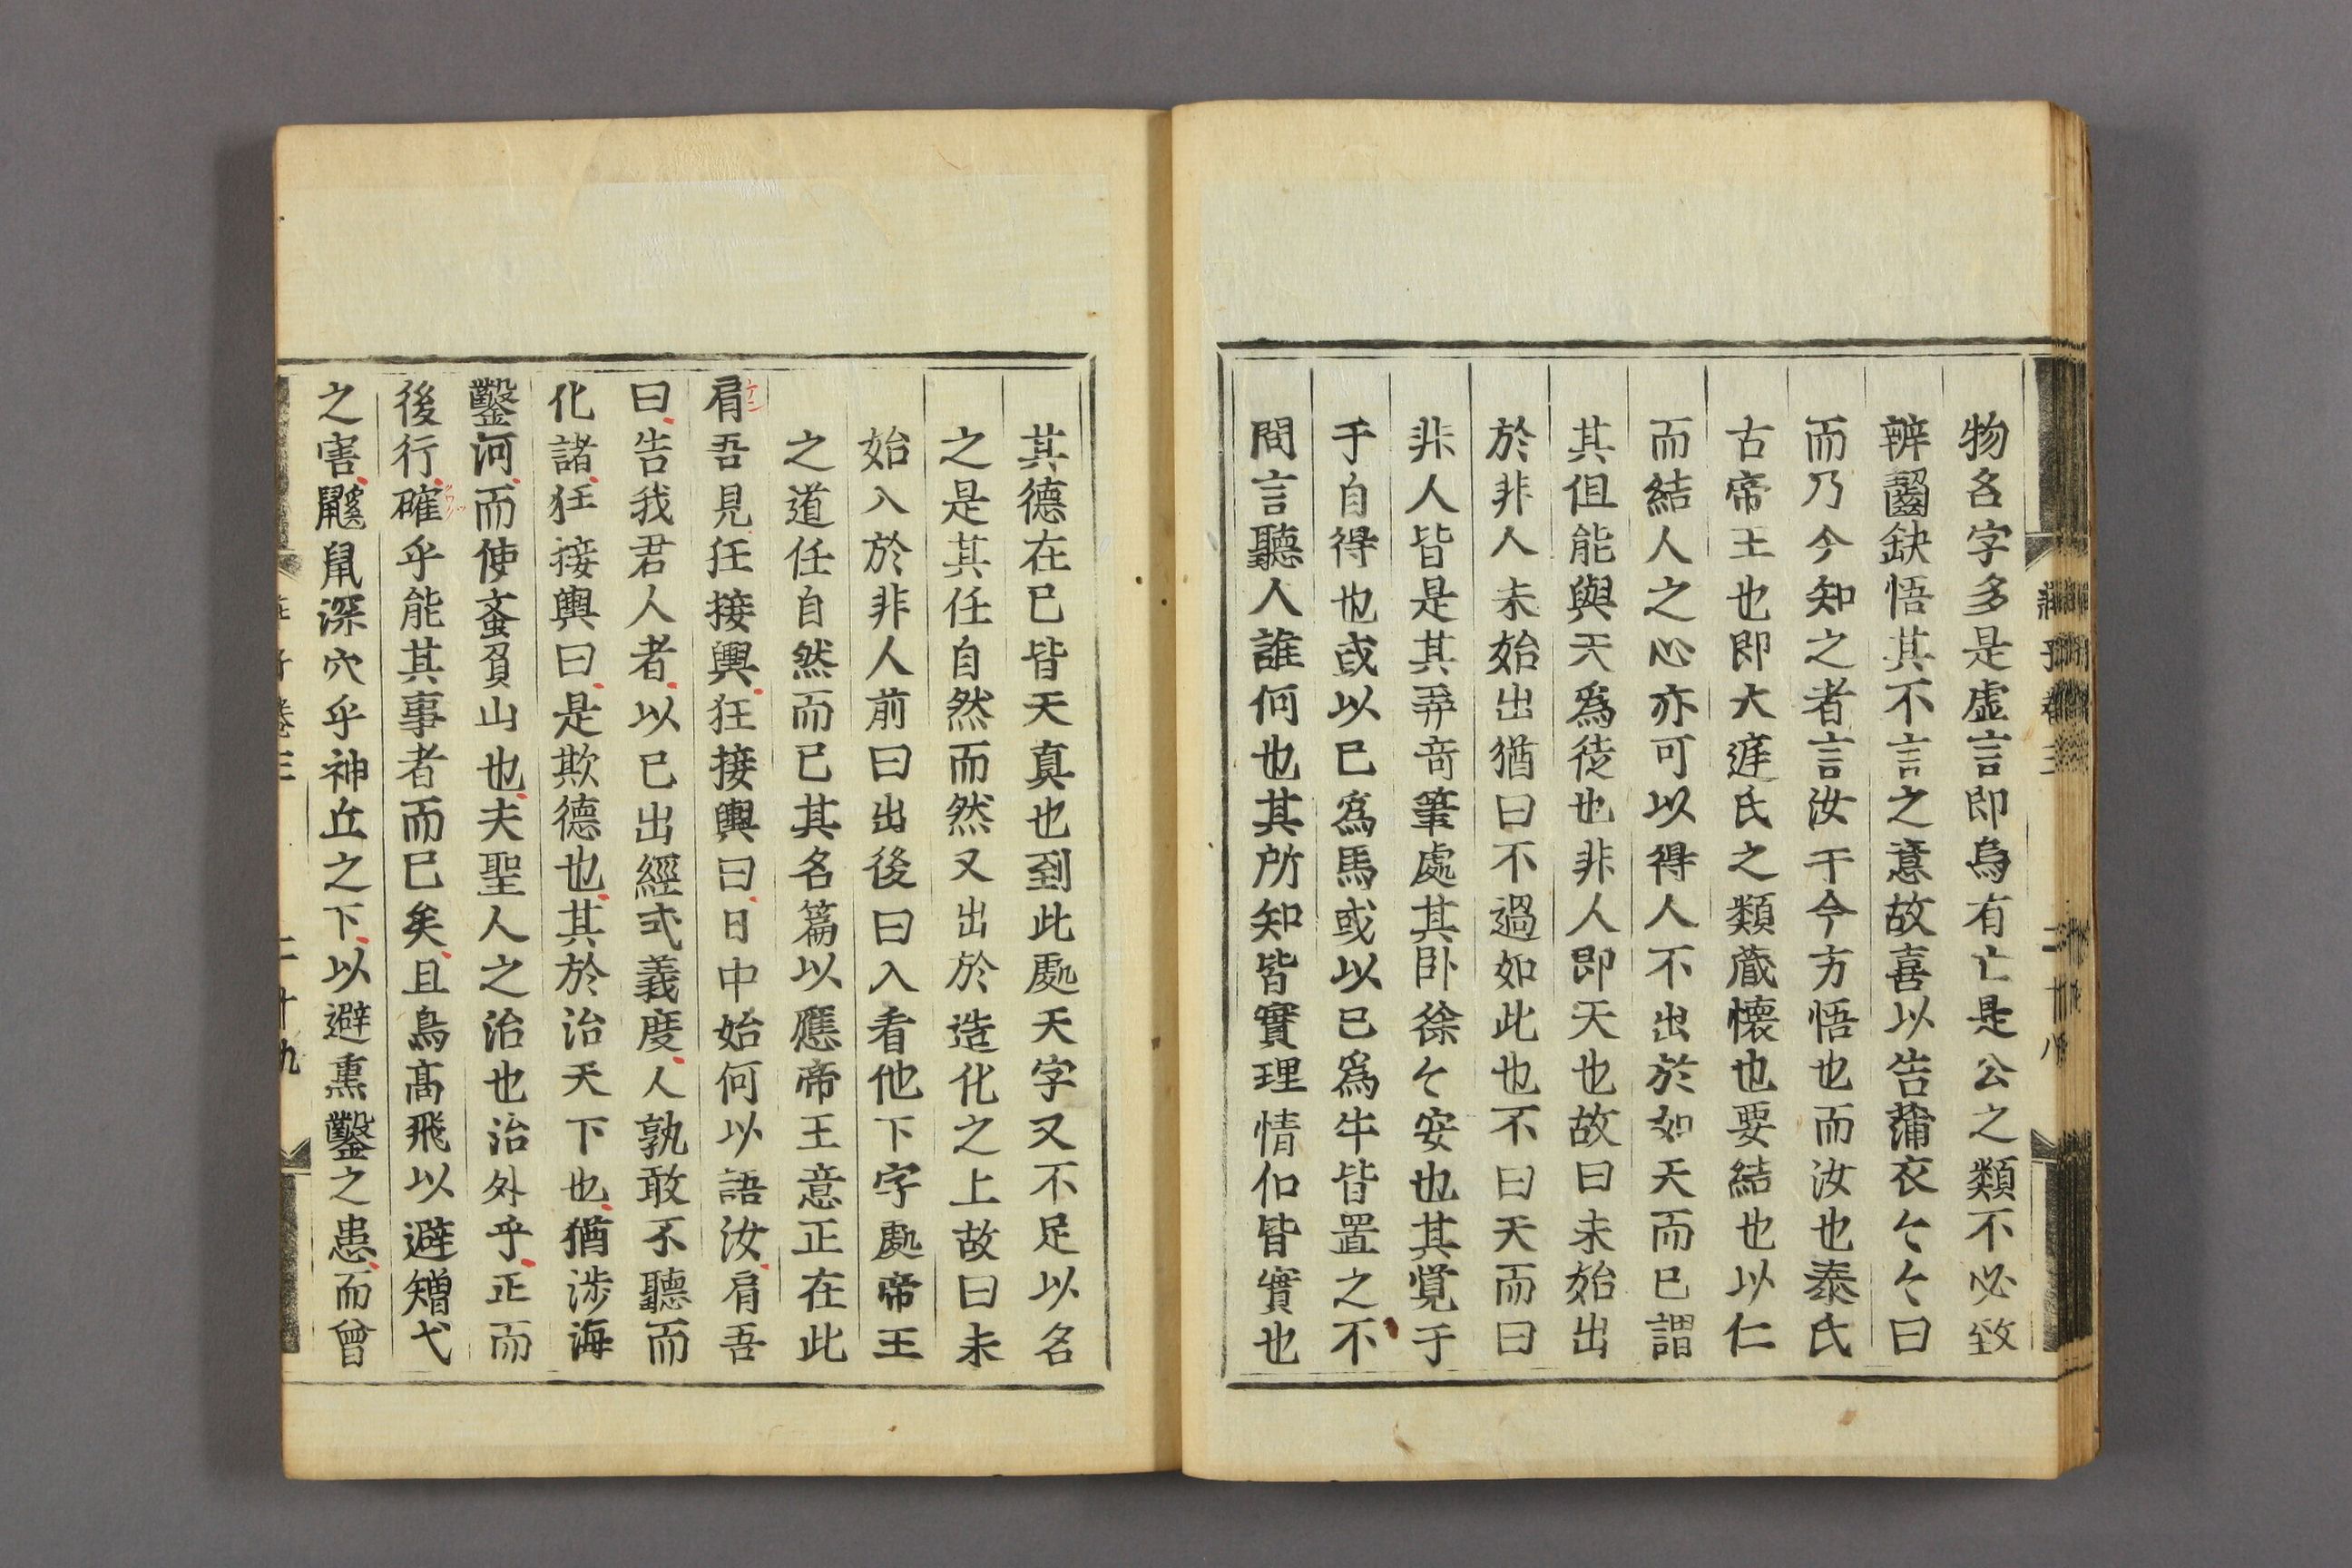 物名字多是虛言即烏有亡是公之類不必致
辨齧缺悟其不言之意故喜以告蒲衣々々曰
而乃今知之者言汝于今方悟也而汝也泰氏
古帝王也即大庭氏之類藏懷也要結也以仁
而結人之心亦可以得人不出於如天而已謂
其但能與天爲徒也非人即天也故曰未始出
於非人未始出猶曰不過如此也不曰天而曰
非人皆是其弄奇筆處其卧徐々安也其覺于
于自得也或以已爲馬或以已爲牛皆置之不
問言聽人誰何也其所知皆實理情信皆實也
其德在已皆天真也到此處天字又不足以名
之是其任自然而然又出於造化之上故曰未
始入於非人前曰出後曰入看他下字處帝王
之道任自然而已其名篇以應帝王意正在此
肩吾見狂接輿狂接輿曰日中始何以語汝肩吾
曰告我君人者以已出經式義度人孰敢不聽而
化諸狂接輿曰是欺德也其於治天下也猶涉海
鑿河而使蚉負山也夫聖人之治也治外乎正而
後行確乎能其事者而已矣且鳥高飛以避矰弋
之害鼷鼠深穴乎神丘之下以避熏鑿之患而曾
莊子卷三
二十九